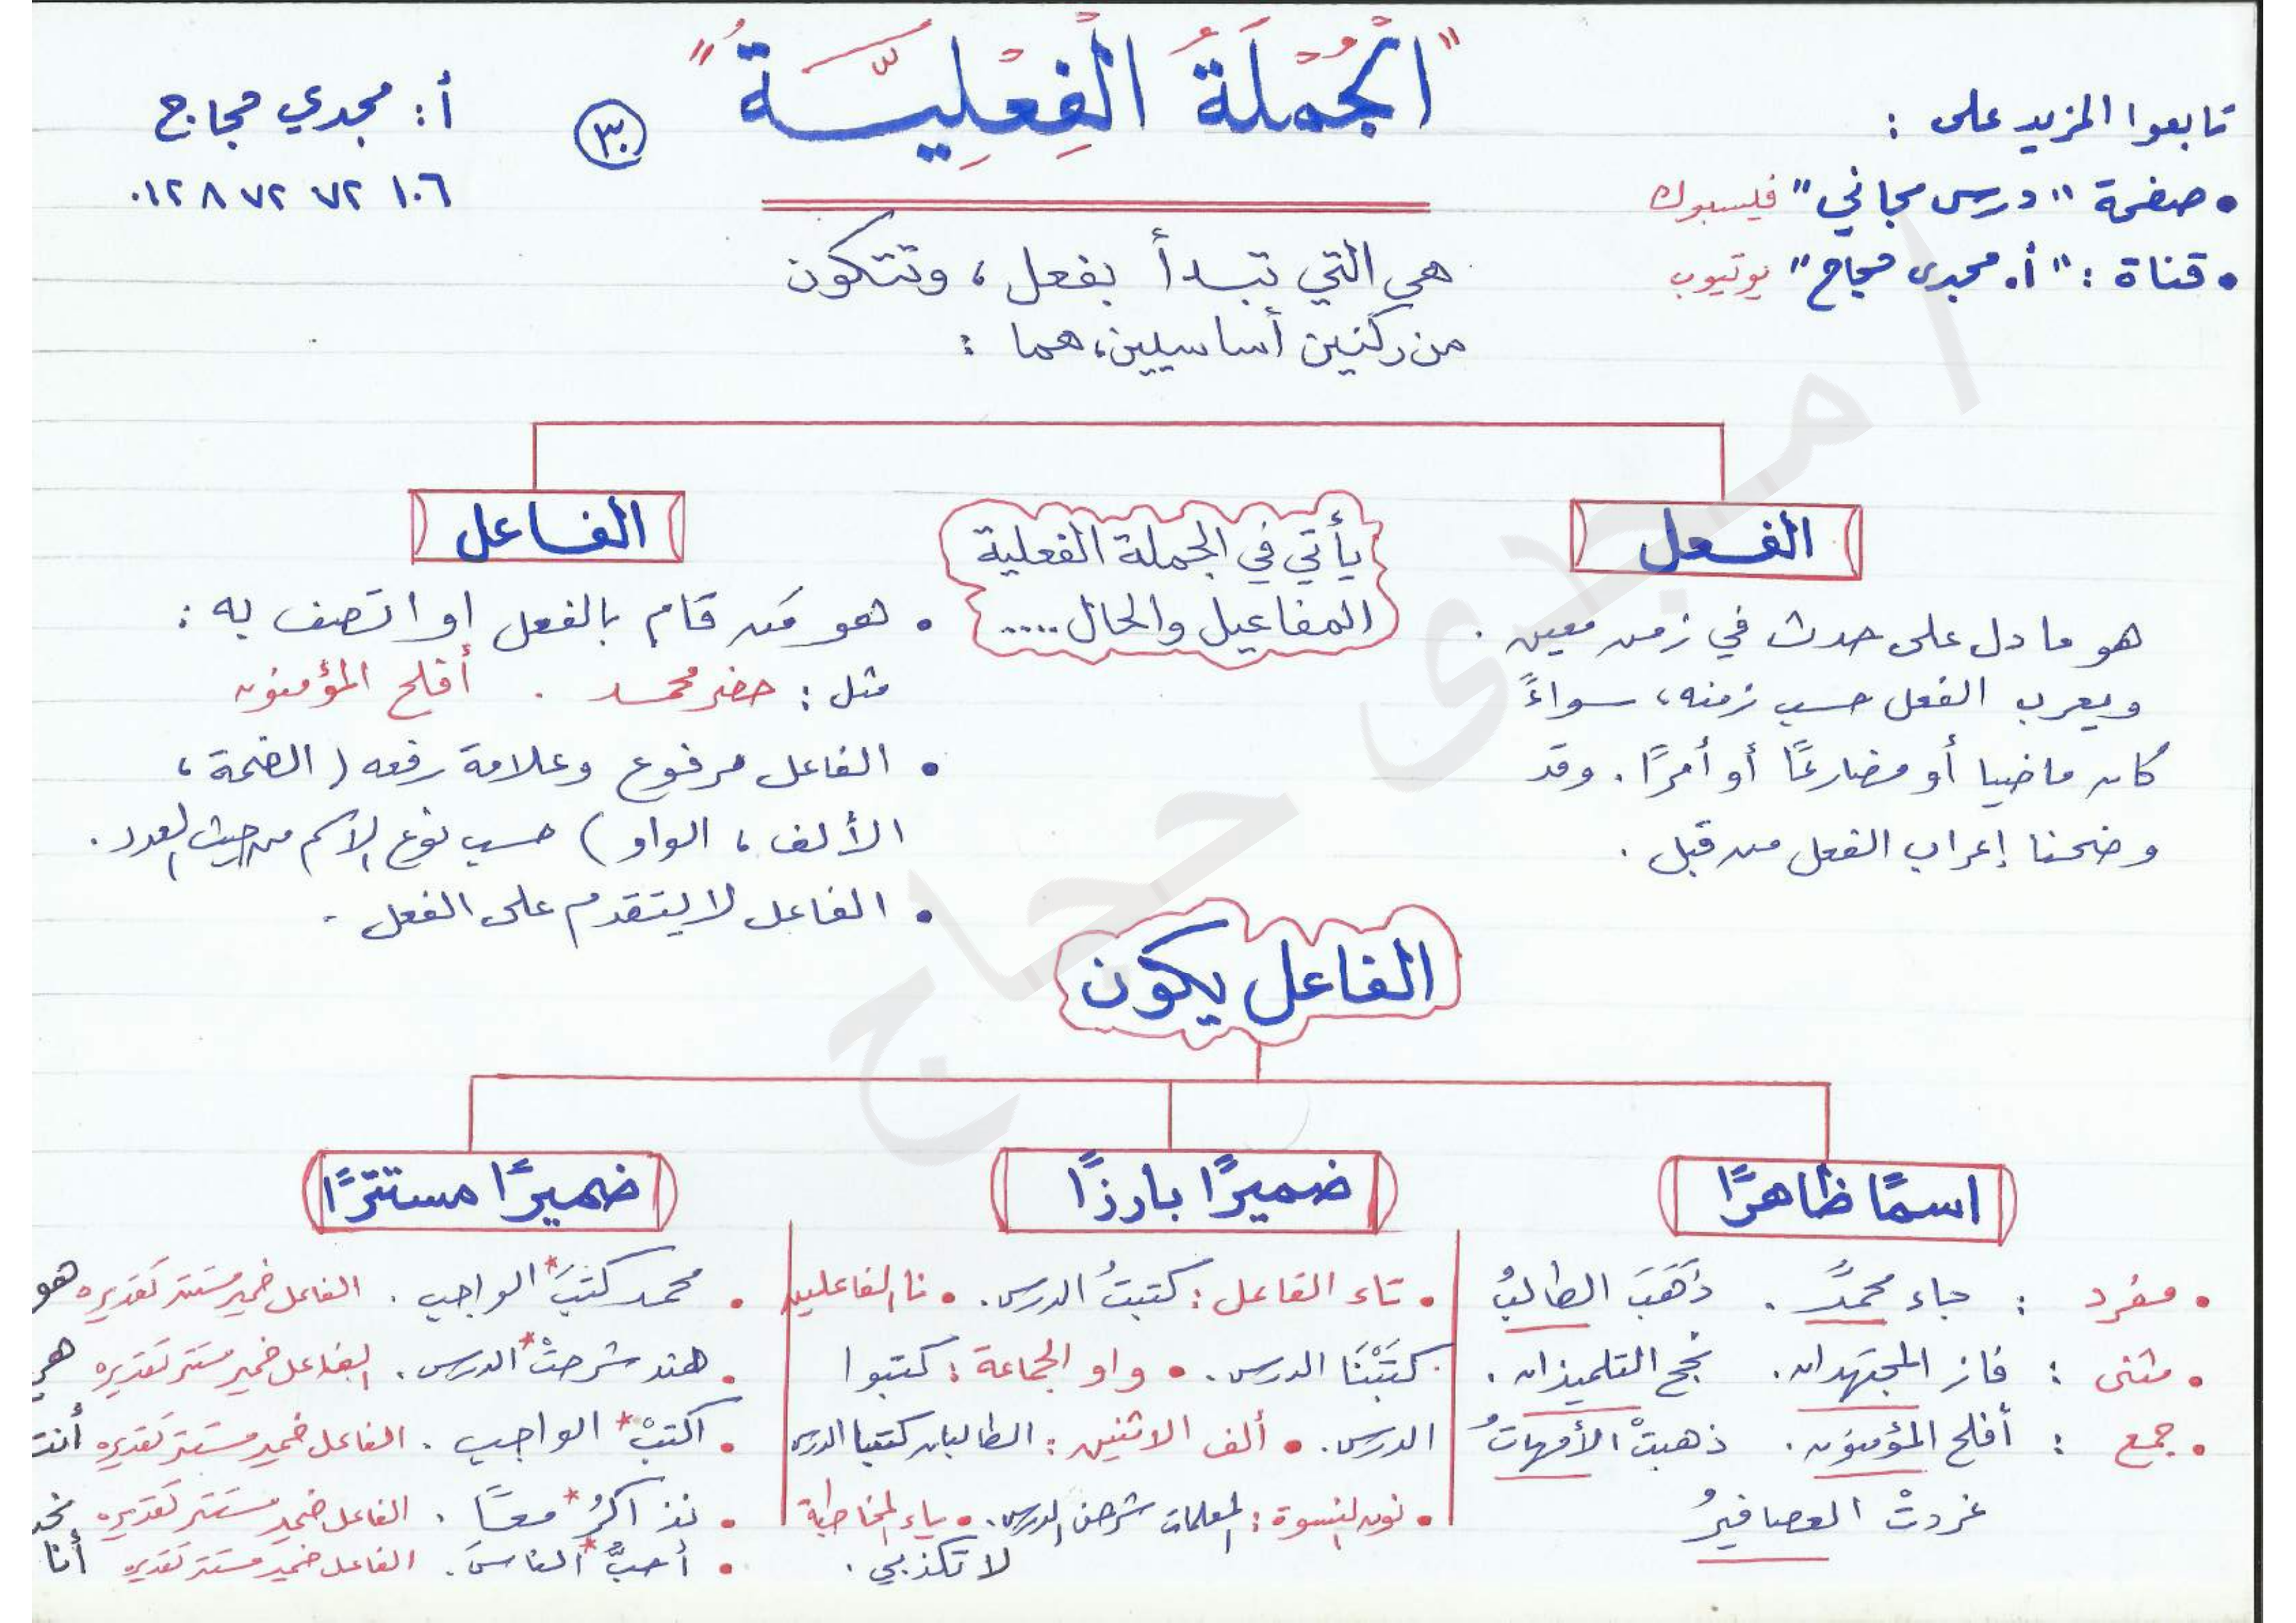 "الْجُمْلَةُ الْفِعْلِيَّةُ"
٣٠
تابعوا المزيد على :
• صفحة "درس مجاني" فيسبوك
• قناة : "أ. مجدى حجاج" يوتيوب
أ : مجدي حجاج
٠١٢٨ ٧٢ ٧٢ ١٠٦
هي التي تبدأ بفعل ، وتتكون
من ركنين أساسيين، هما :
الفعل
هو ما دل على حدث في زمن معين .
ويعرب الفعل حسب زمنه ، سواءً
كان ماضيا أو مضارعًا أو أمرًا . وقد
وضحنا إعراب الفعل من قبل .
يأتي في الجملة الفعلية
المفاعيل والحال ....
الفاعل
• هو مَن قام بالفعل او اتصف به :
مثل : حضر محمد . أفلح المؤمنون
• الفاعل مرفوع وعلامة رفعه ( الضمة ،
الألف ، الواو ) حسب نوع الاسم من حيث العدد .
• الفاعل لا يتقدم على الفعل .
الفاعل يكون
اسمًا ظاهرًا
• مفرد : جاء محمدٌ . ذَهَبَ الطالبُ
• مثنى : فاز المجتهدان . نجح التلميذان .
• جمع : أفلح المؤمنون . ذهبتْ الأمهاتُ
غردتْ العصافيرُ
ضميرًا بارزًا
• تاء الفاعل : كتبتُ الدرس . • نا الفاعلين
كتَبْنَا الدرس . • واو الجماعة : كتبوا
الدرس . • ألف الاثنين : الطالبان كتبا الدرس
• نون النسوة : المعلمات شرحن الدرس . • ياء المخاطبة
لا تكذبي .
ضميرًا مستترًا
• محمد كتبَ* الواجب . الفاعل ضمير مستتر تقديره هو
• هند شرحتْ* الدرس . الفاعل ضمير مستتر تقديره هي
• اكتبْ* الواجب . الفاعل ضمير مستتر تقديره أنت
• نذاكرُ* معًا . الفاعل ضمير مستتر تقديره نحن
• أحبُّ* الناسَ . الفاعل ضمير مستتر تقديره أنا
أ / مجدى حجاج